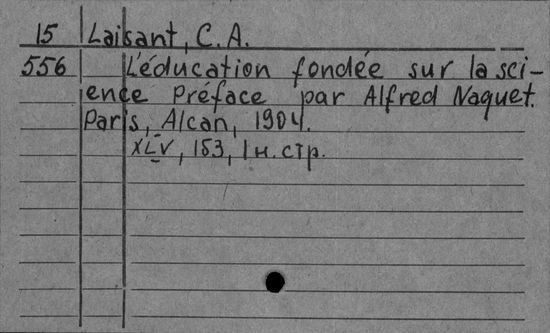 15 Laisant, C.A.
556 L'éducation fondée sur la sci-
ence Préface par Alfred Naquet.
Paris, Alcan, 1904.
XLV, 153, 1 н. стр.